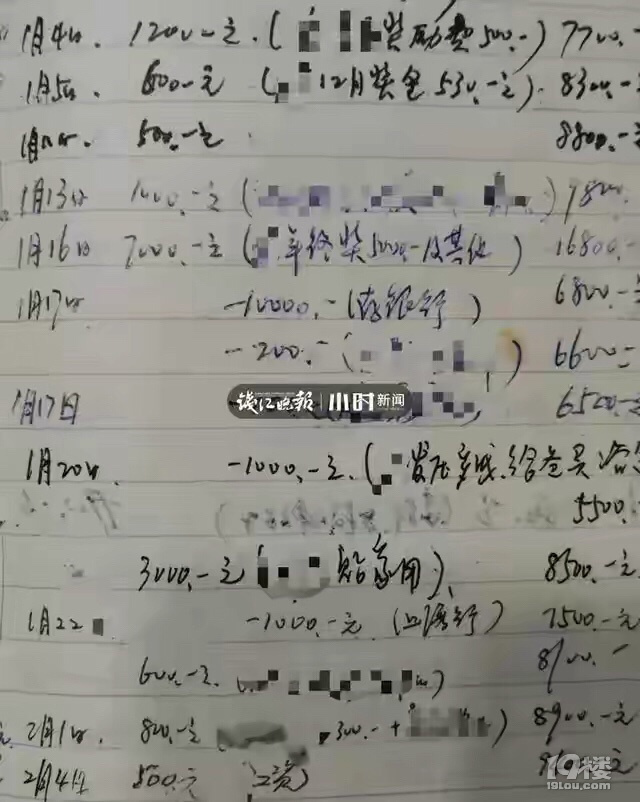 1月4日. 1200.-元.( 奖励费500.-) 7700.-
1月5日. 600.-元 ( 12月奖金530.-元). 8300.-
500.-元 8800.-元
1月13日 1000.-元 ( ) 9800.-
1月16日 7000.-元 ( 年终奖5000.-及其他) 16800.-
1月17日 -10000.-(存银行) 6800.-元
-200.- ( ) 6600.-
1月17日 6500.-元
钱江晚报 小时新闻
1月20日. -1000.-元.( 发压岁钱.给爸买
5500.
3000.-元( 贴家用). 8500.-元
1月22 -1000.-元 (存银行) 7500.-元
600.-元.( ) 8100.-
2月1日. 820.-元 300.-+ ) 8900.-元
2月4日 500.元 工资)
19楼
19lou.com